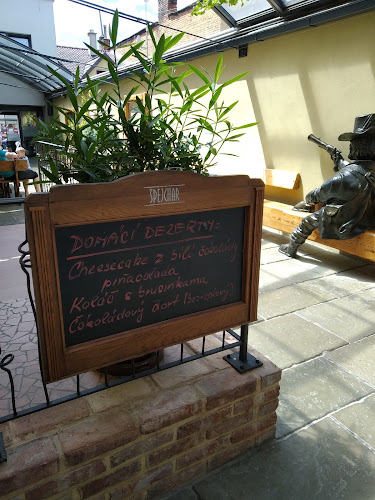 ŠPEJCHAR
DOMÁCÍ DEZERTY:
Cheesecake z bílé čokolády
piňacolada
Koláč s brusinkama
Čokoládový dort (Bezlepkový)